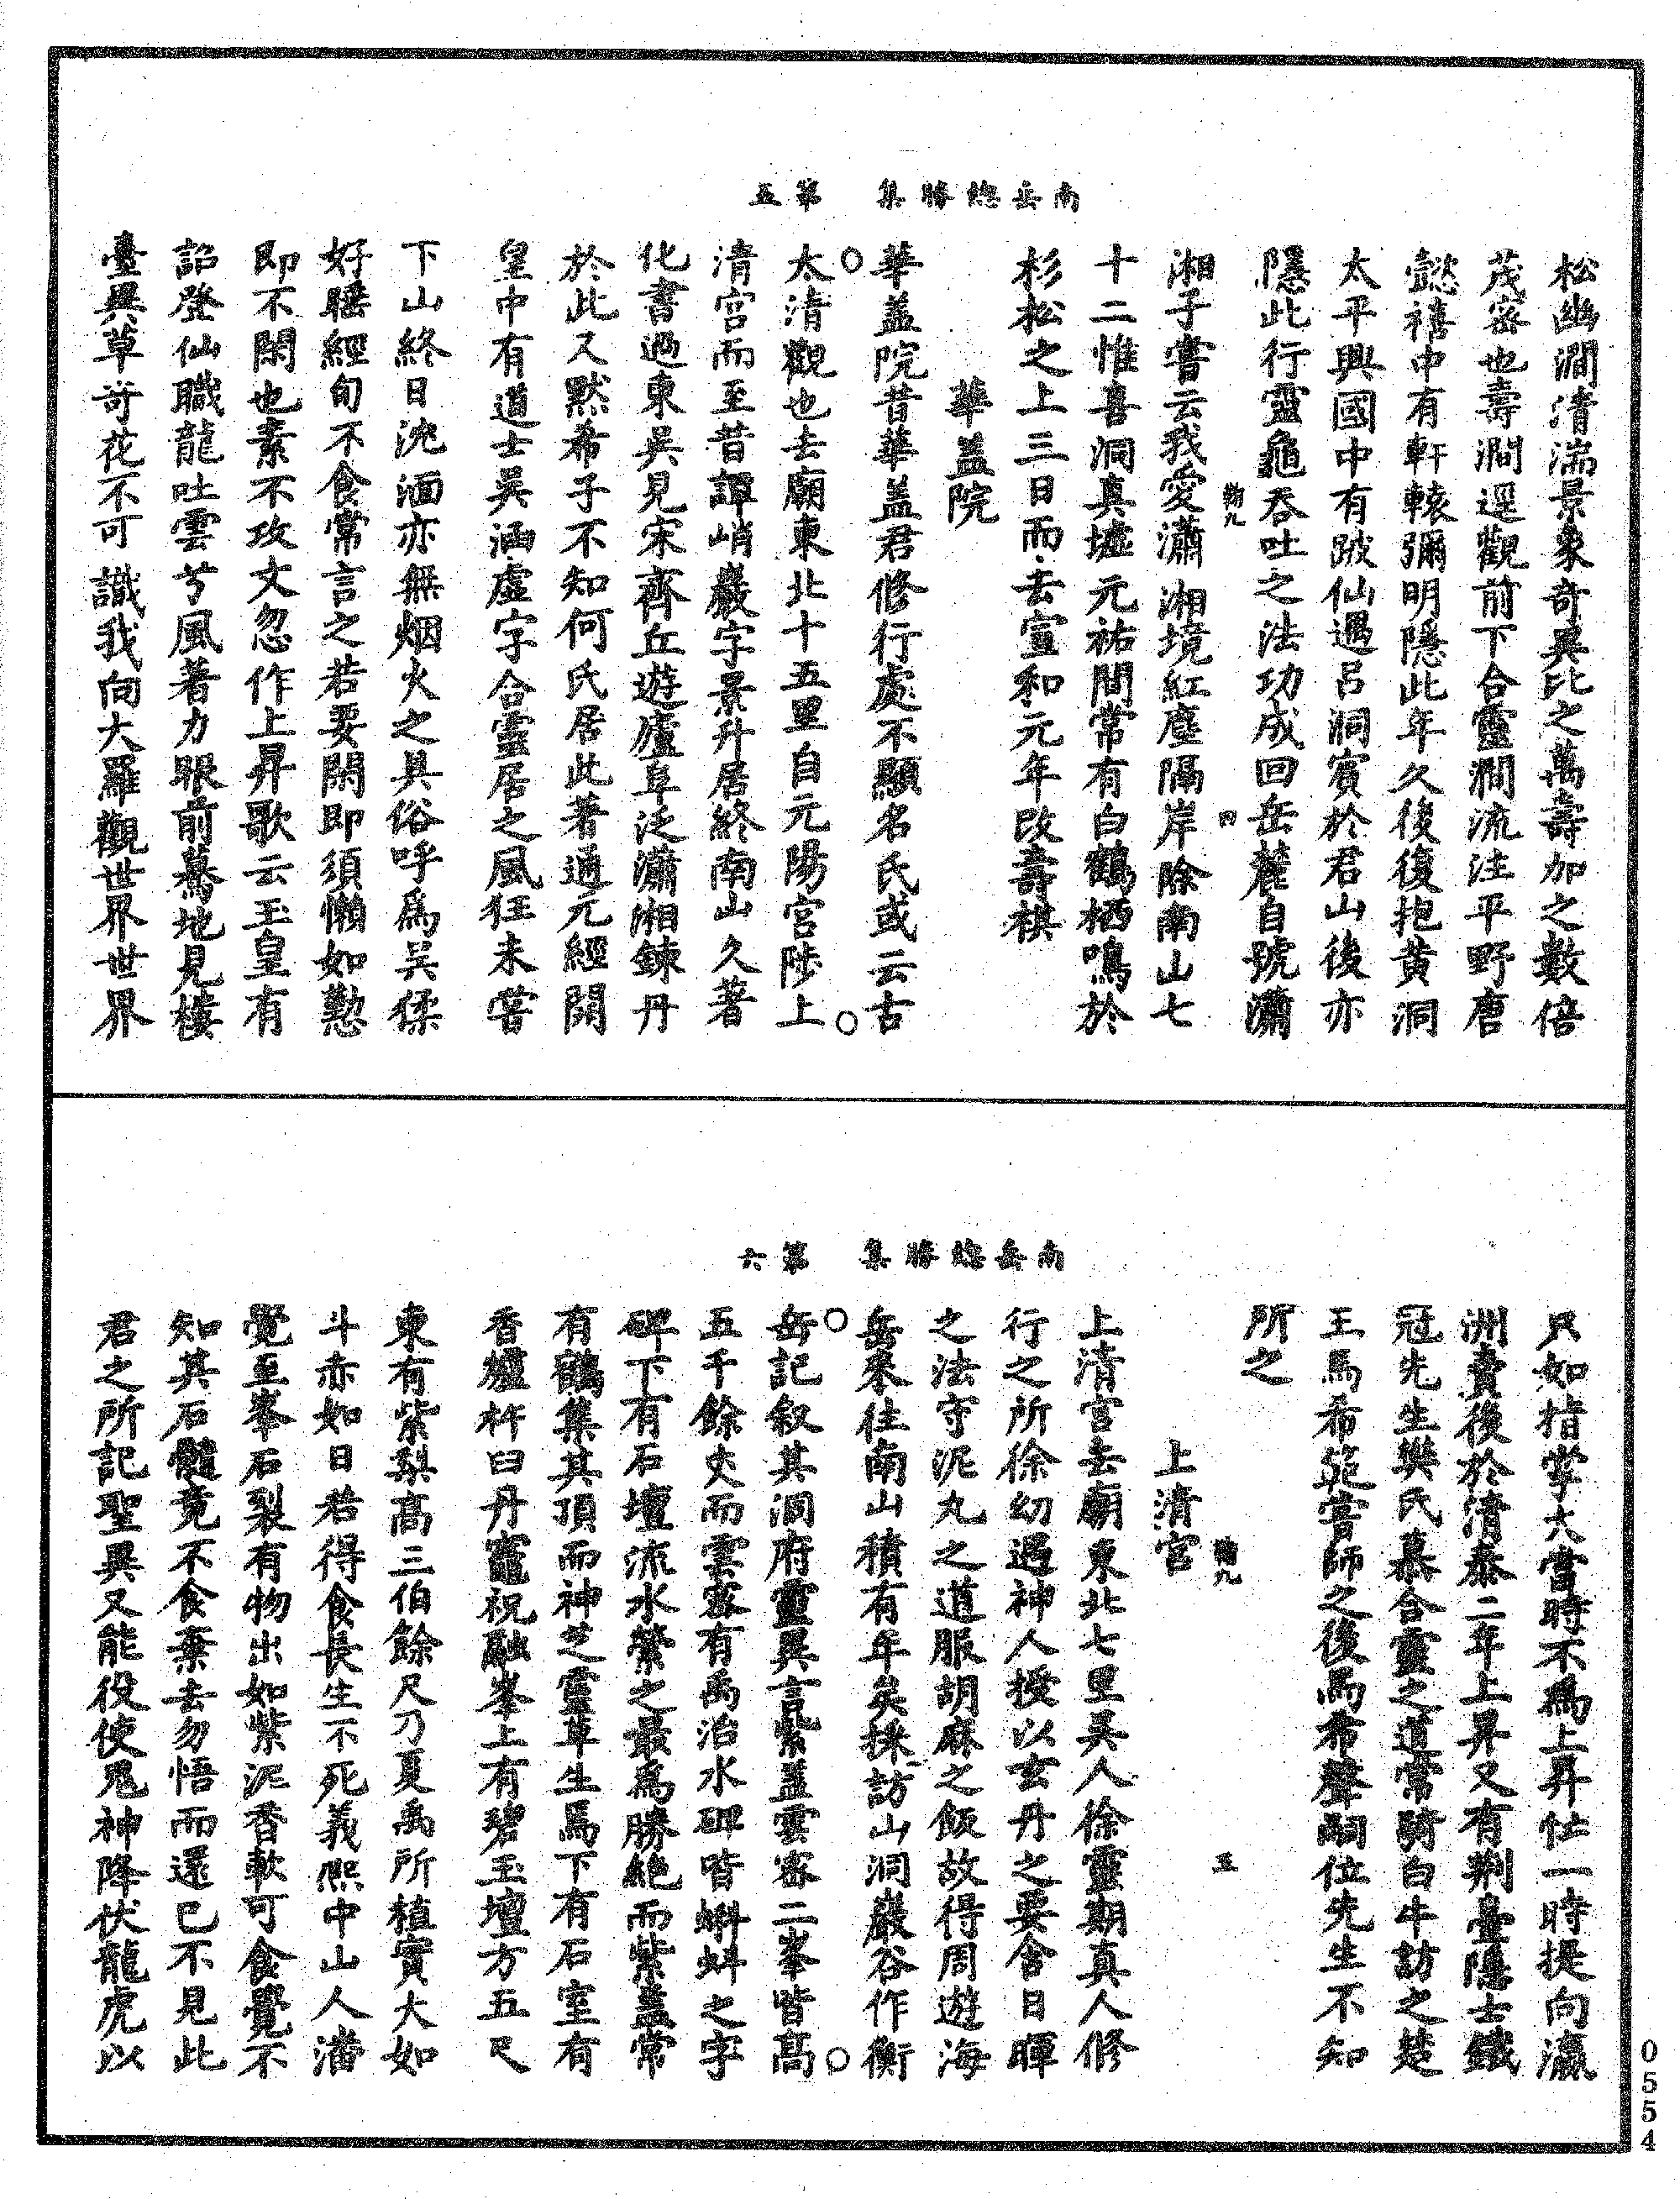 南岳總勝集　第五
松幽澗清湍景象奇異比之萬壽加之數倍
茂密也壽澗逕觀前下合靈澗流注平野唐
懿禧中有軒轅彌明隱此年久後復抱黄洞
太平興國中有跛仙遇呂洞賓於君山後亦
隱此行靈龜吞吐之法功成回岳麓自號瀟
湘子嘗云我愛瀟湘境紅塵隔岸除南山七
十二惟喜洞真墟元祐間常有白鶴栖鳴於
杉松之上三日而去宣和元年改壽祺
華盖院
華盖院昔華盖君修行處不顯名氏或云古
太清觀也去廟東北十五里自元陽宮陟上
清宮而至昔譚峭巖字景升居終南山久著
化書過東吳見宋齊丘遊廬阜泛瀟湘鍊丹
於此又黙希子不知何氏居此著通元經聞
皇中有道士吳涵虛字合靈居之風狂未嘗
下山終日沈湎亦無烟火之具俗呼爲吳猱
好睡經旬不食常言之若要閑即須懶如懃
即不閑也素不攻文忽作上昇歌云玉皇有
詔登仙職龍吐雲兮風著力眼前驀地見樓
臺異草奇花不可識我向大羅觀世界世界
南岳總勝集　第六
只如指掌大當時不爲上昇忙一時提向瀛
洲賣後於清泰二年上昇又有荆臺隱士鐵
冠先生樊氏慕合靈之道常騎白牛訪之楚
王馬希範嘗師之後馬希聲嗣位先生不知
所之
上清宮
上清宮去廟東北七里吳人徐靈期真人修
行之所徐幼遇神人授以玄丹之要含日暉
之法守泥丸之道服胡麻之飯故得周遊海
岳來往南山積有年矣採訪山洞巖谷作衡
岳記叙其澗府靈異言紫盖雲密二峯皆髙
五千餘丈而雲密有禹治水碑皆蝌蚪之字
碑下有石壇流水縈之最爲勝絶而紫盖常
有鶴集其頂而神芝靈草生焉下有石室有
香爐杵臼丹竈祝融峯上有碧玉壇方五尺
東有紫梨高三伯餘尺乃夏禹所植實大如
斗赤如日若得食長生不死義熙中山人潘
覺至峯石裂有物出如紫泥香軟可食覺不
知其石髓竟不食棄去勿悟而還已不見此
君之所記聖異又能役使鬼神降伏龍虎以
0554